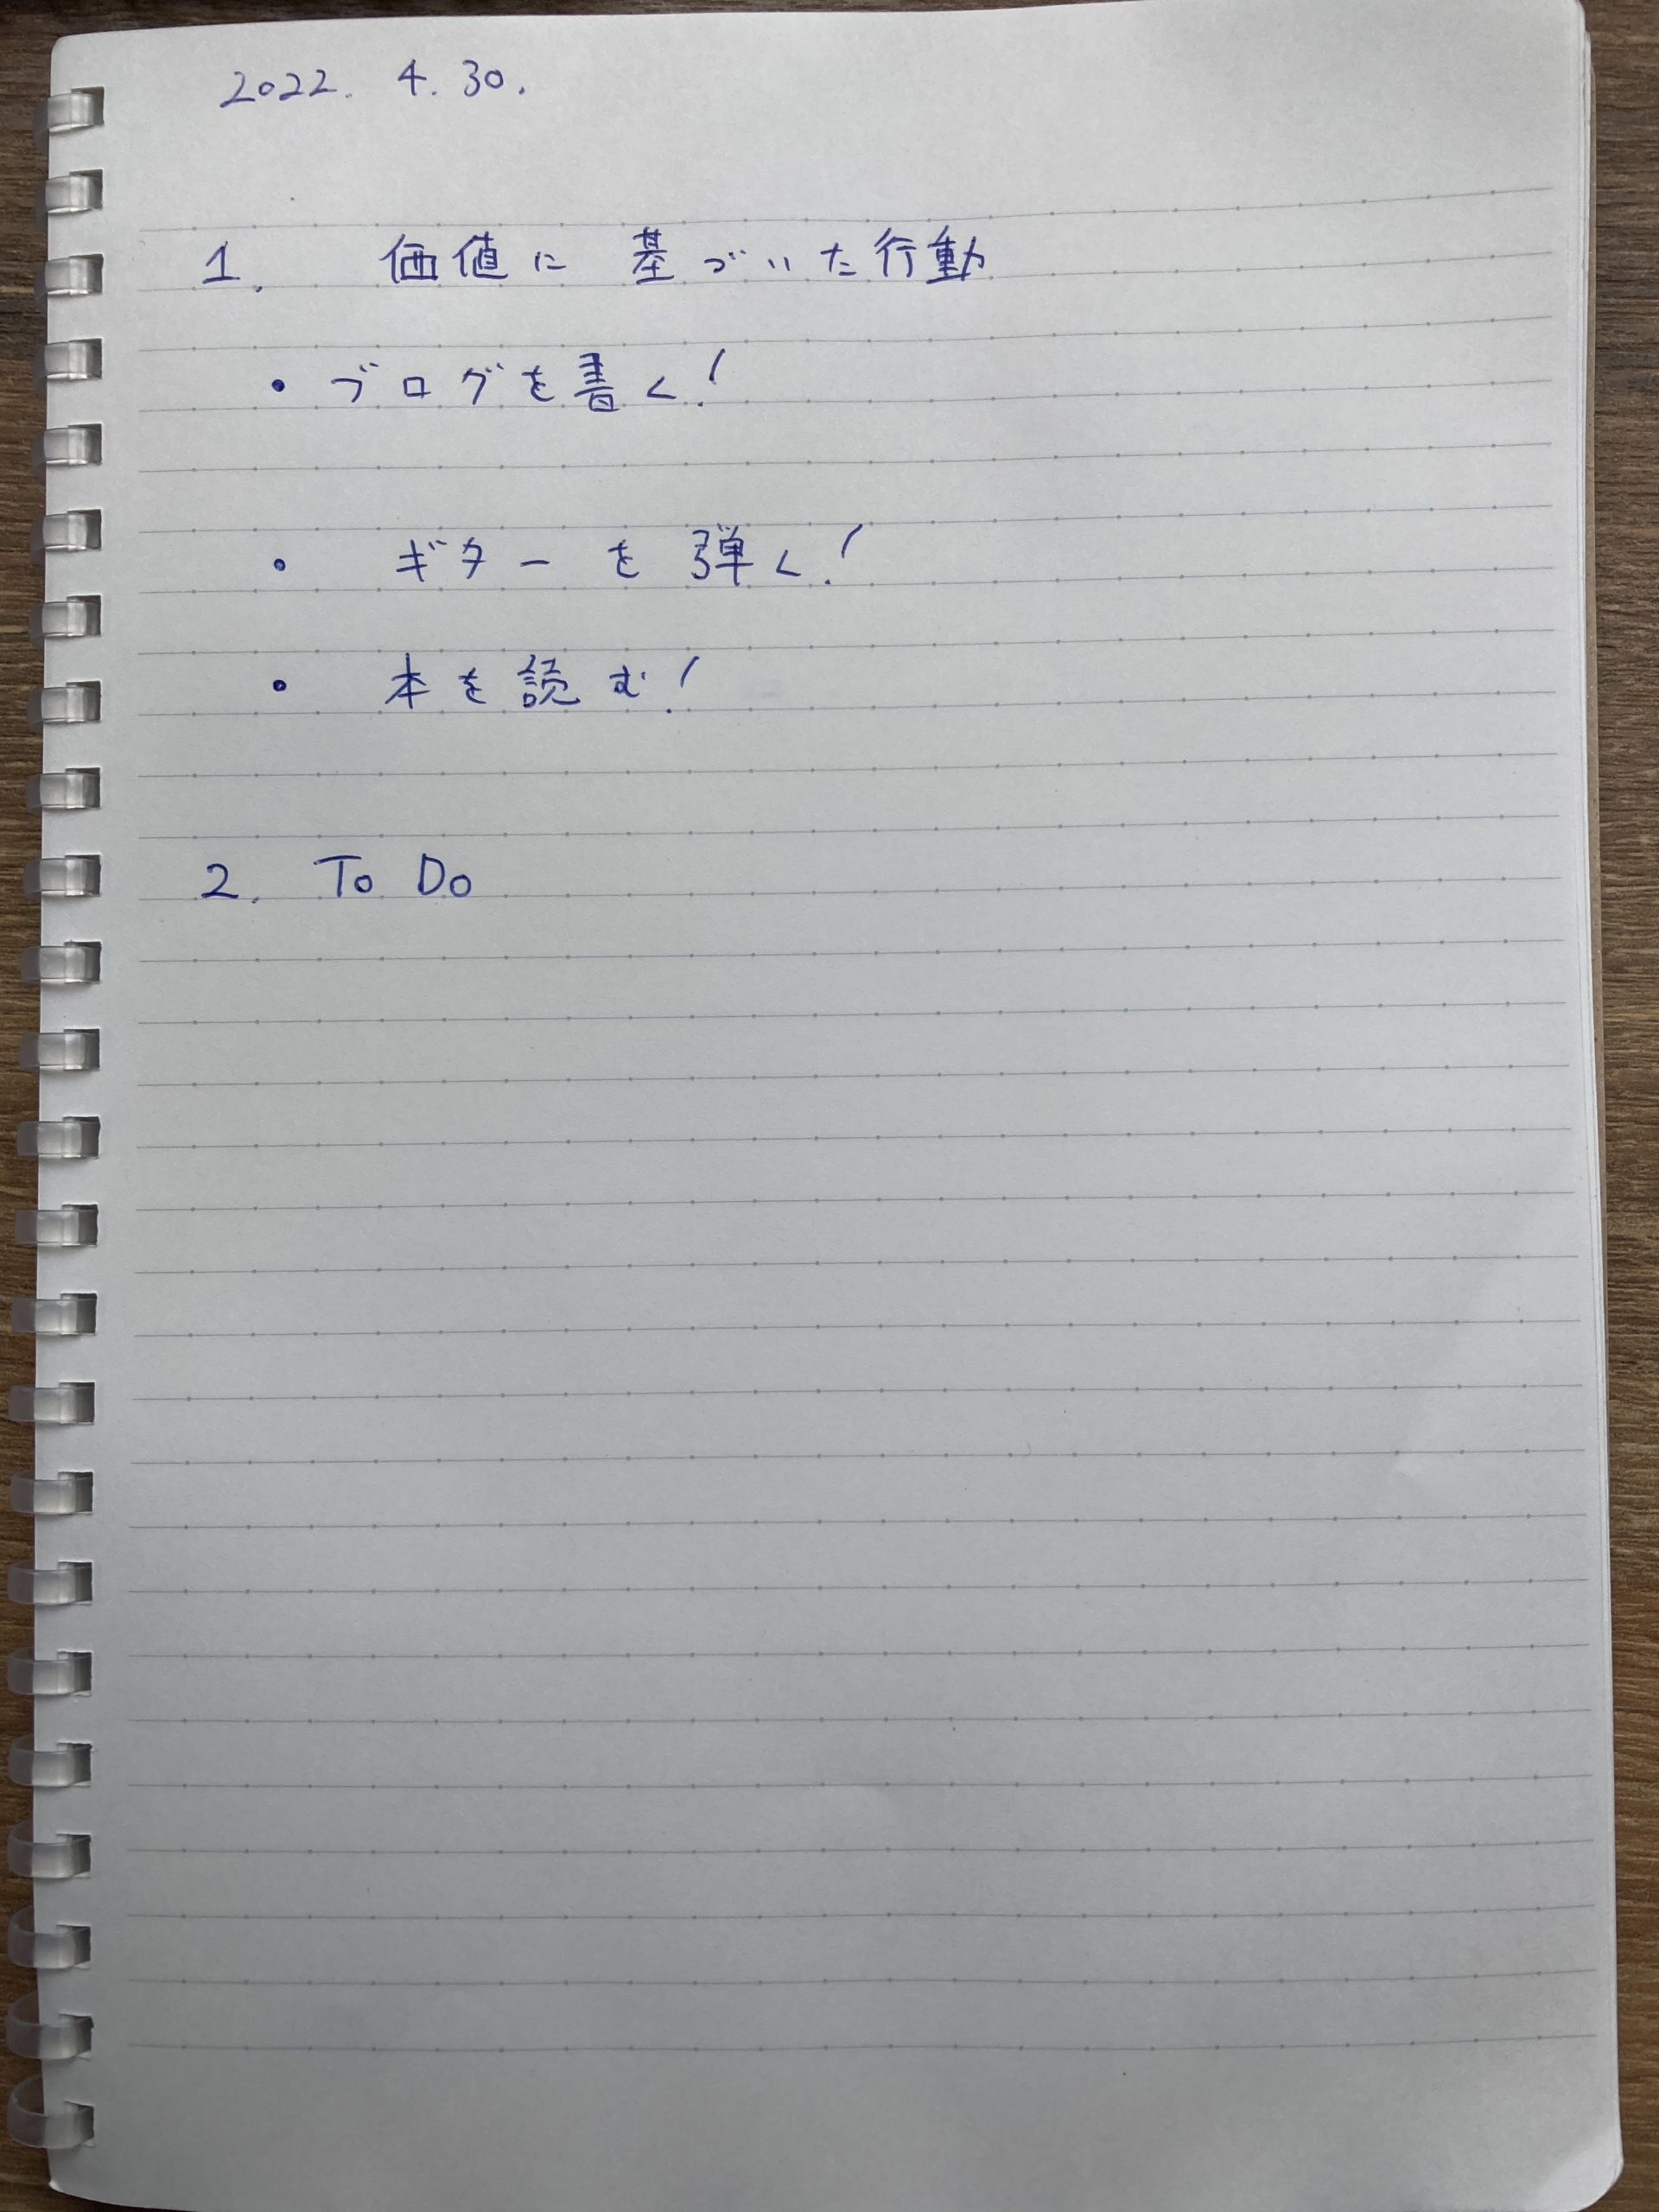 2022. 4. 30.
1. 価値に基づいた行動
・ブログを書く!
・ギターを弾く!
・本を読む!
2. To Do